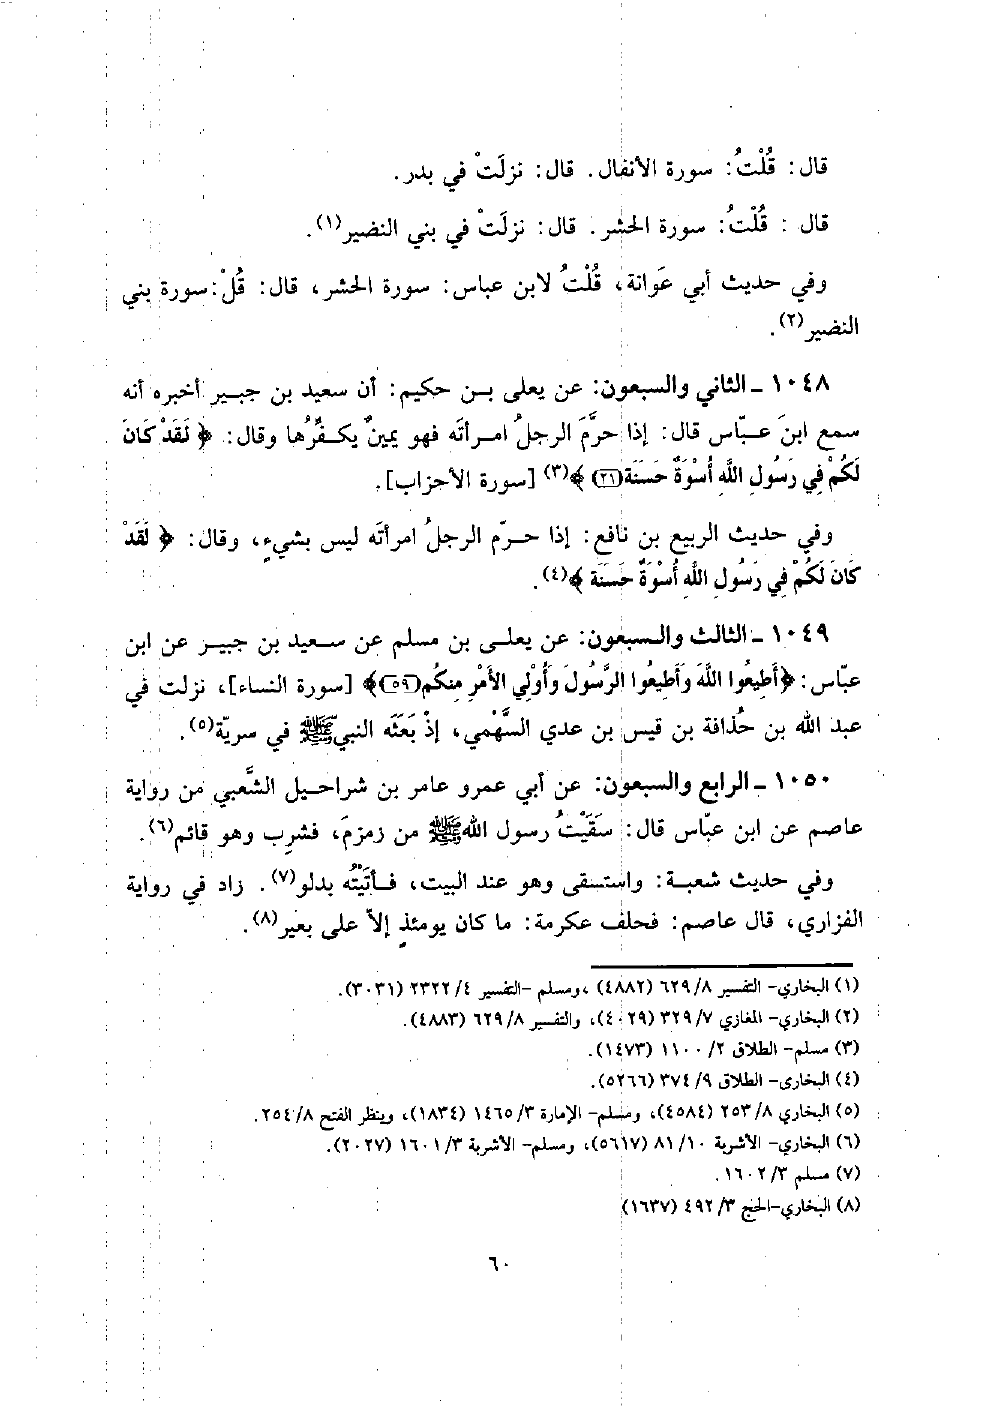 قال: قُلْتُ: سورة الأنفال. قال: نزلَتْ في بدر.
قال : قُلْتُ: سورة الحشر. قال: نزلَتْ في بني النضير(١).
وفي حديث أبي عَوانة، قُلْتُ لابن عباس: سورة الحشر، قال: قُلْ: سورة بني
النضير(٢).
١٠٤٨ ـ الثاني والسبعون: عن يعلى بـن حكيم: أن سعيد بن جبـير أخبره أنه
سمع ابنَ عبّاس قال: إذا حرَّمَ الرجلُ امـرأتَه فهو يمينٌ يكـفِّرُها وقال: ﴿ لَقَدْ كَانَ
لَكُمْ فِي رَسُولِ اللَّهِ أُسْوَةٌ حَسَنَة(٢١) ﴾(٣) [سورة الأحزاب].
وفي حديث الربيع بن نافع: إذا حـرّم الرجلُ امرأتَه ليس بشيءٍ، وقال: ﴿ لَقَدْ
كَانَ لَكُمْ فِي رَسُولِ اللَّهِ أُسْوَةٌ حَسَنَة ﴾(٤).
١٠٤٩ ـ الثالث والـسبعون: عن يعلـى بن مسلم عن سـعيد بن جبيـر عن ابن
عبّاس: ﴿أَطِيعُوا اللَّهَ وَأَطِيعُوا الرَّسُولَ وَأُوْلِي الأَمْرِ مِنكُم(٥٩)﴾ [سورة النساء]، نزلت في
عبد الله بن حُذافة بن قيس بن عدي السَّهْمي، إذْ بَعَثَه النبيّﷺ في سريّة(٥).
١٠٥٠ ـ الرابع والسبعون: عن أبي عمرو عامر بن شراحيل الشَّعبي من رواية
عاصم عن ابن عبّاس قال: سَقَيْتُ رسول اللهﷺ من زمزمَ، فشرِب وهو قائم(٦).
وفي حديث شعبـة: واستسقى وهو عند البيت، فـأتَيْتُه بدلو(٧). زاد في رواية
الفزاري، قال عاصم: فحلف عكرمة: ما كان يومئذٍ إلاّ على بعير(٨).
(١) البخاري- التفسير ٨/ ٦٢٩ (٤٨٨٢) ،ومسلم -التفسير ٤/ ٢٣٢٢ (٣٠٣١).
(٢) البخاري- المغازي ٧/ ٣٢٩ (٤٠٢٩)، والتفسير ٨/ ٦٢٩ (٤٨٨٣).
(٣) مسلم- الطلاق ٢/ ١١٠٠ (١٤٧٣).
(٤) البخاري- الطلاق ٩/ ٣٧٤ (٥٢٦٦).
(٥) البخاري ٨/ ٢٥٣ (٤٥٨٤)، ومسلم- الإمارة ٣/ ١٤٦٥ (١٨٣٤)، وينظر الفتح ٨/ ٢٥٤.
(٦) البخاري- الأشربة ١٠/ ٨١ (٥٦١٧)، ومسلم- الأشربة ٣/ ١٦٠١ (٢٠٢٧).
(٧) مسلم ٣/ ١٦٠٢.
(٨) البخاري-الحج ٣/ ٤٩٢ (١٦٣٧)
٦٠